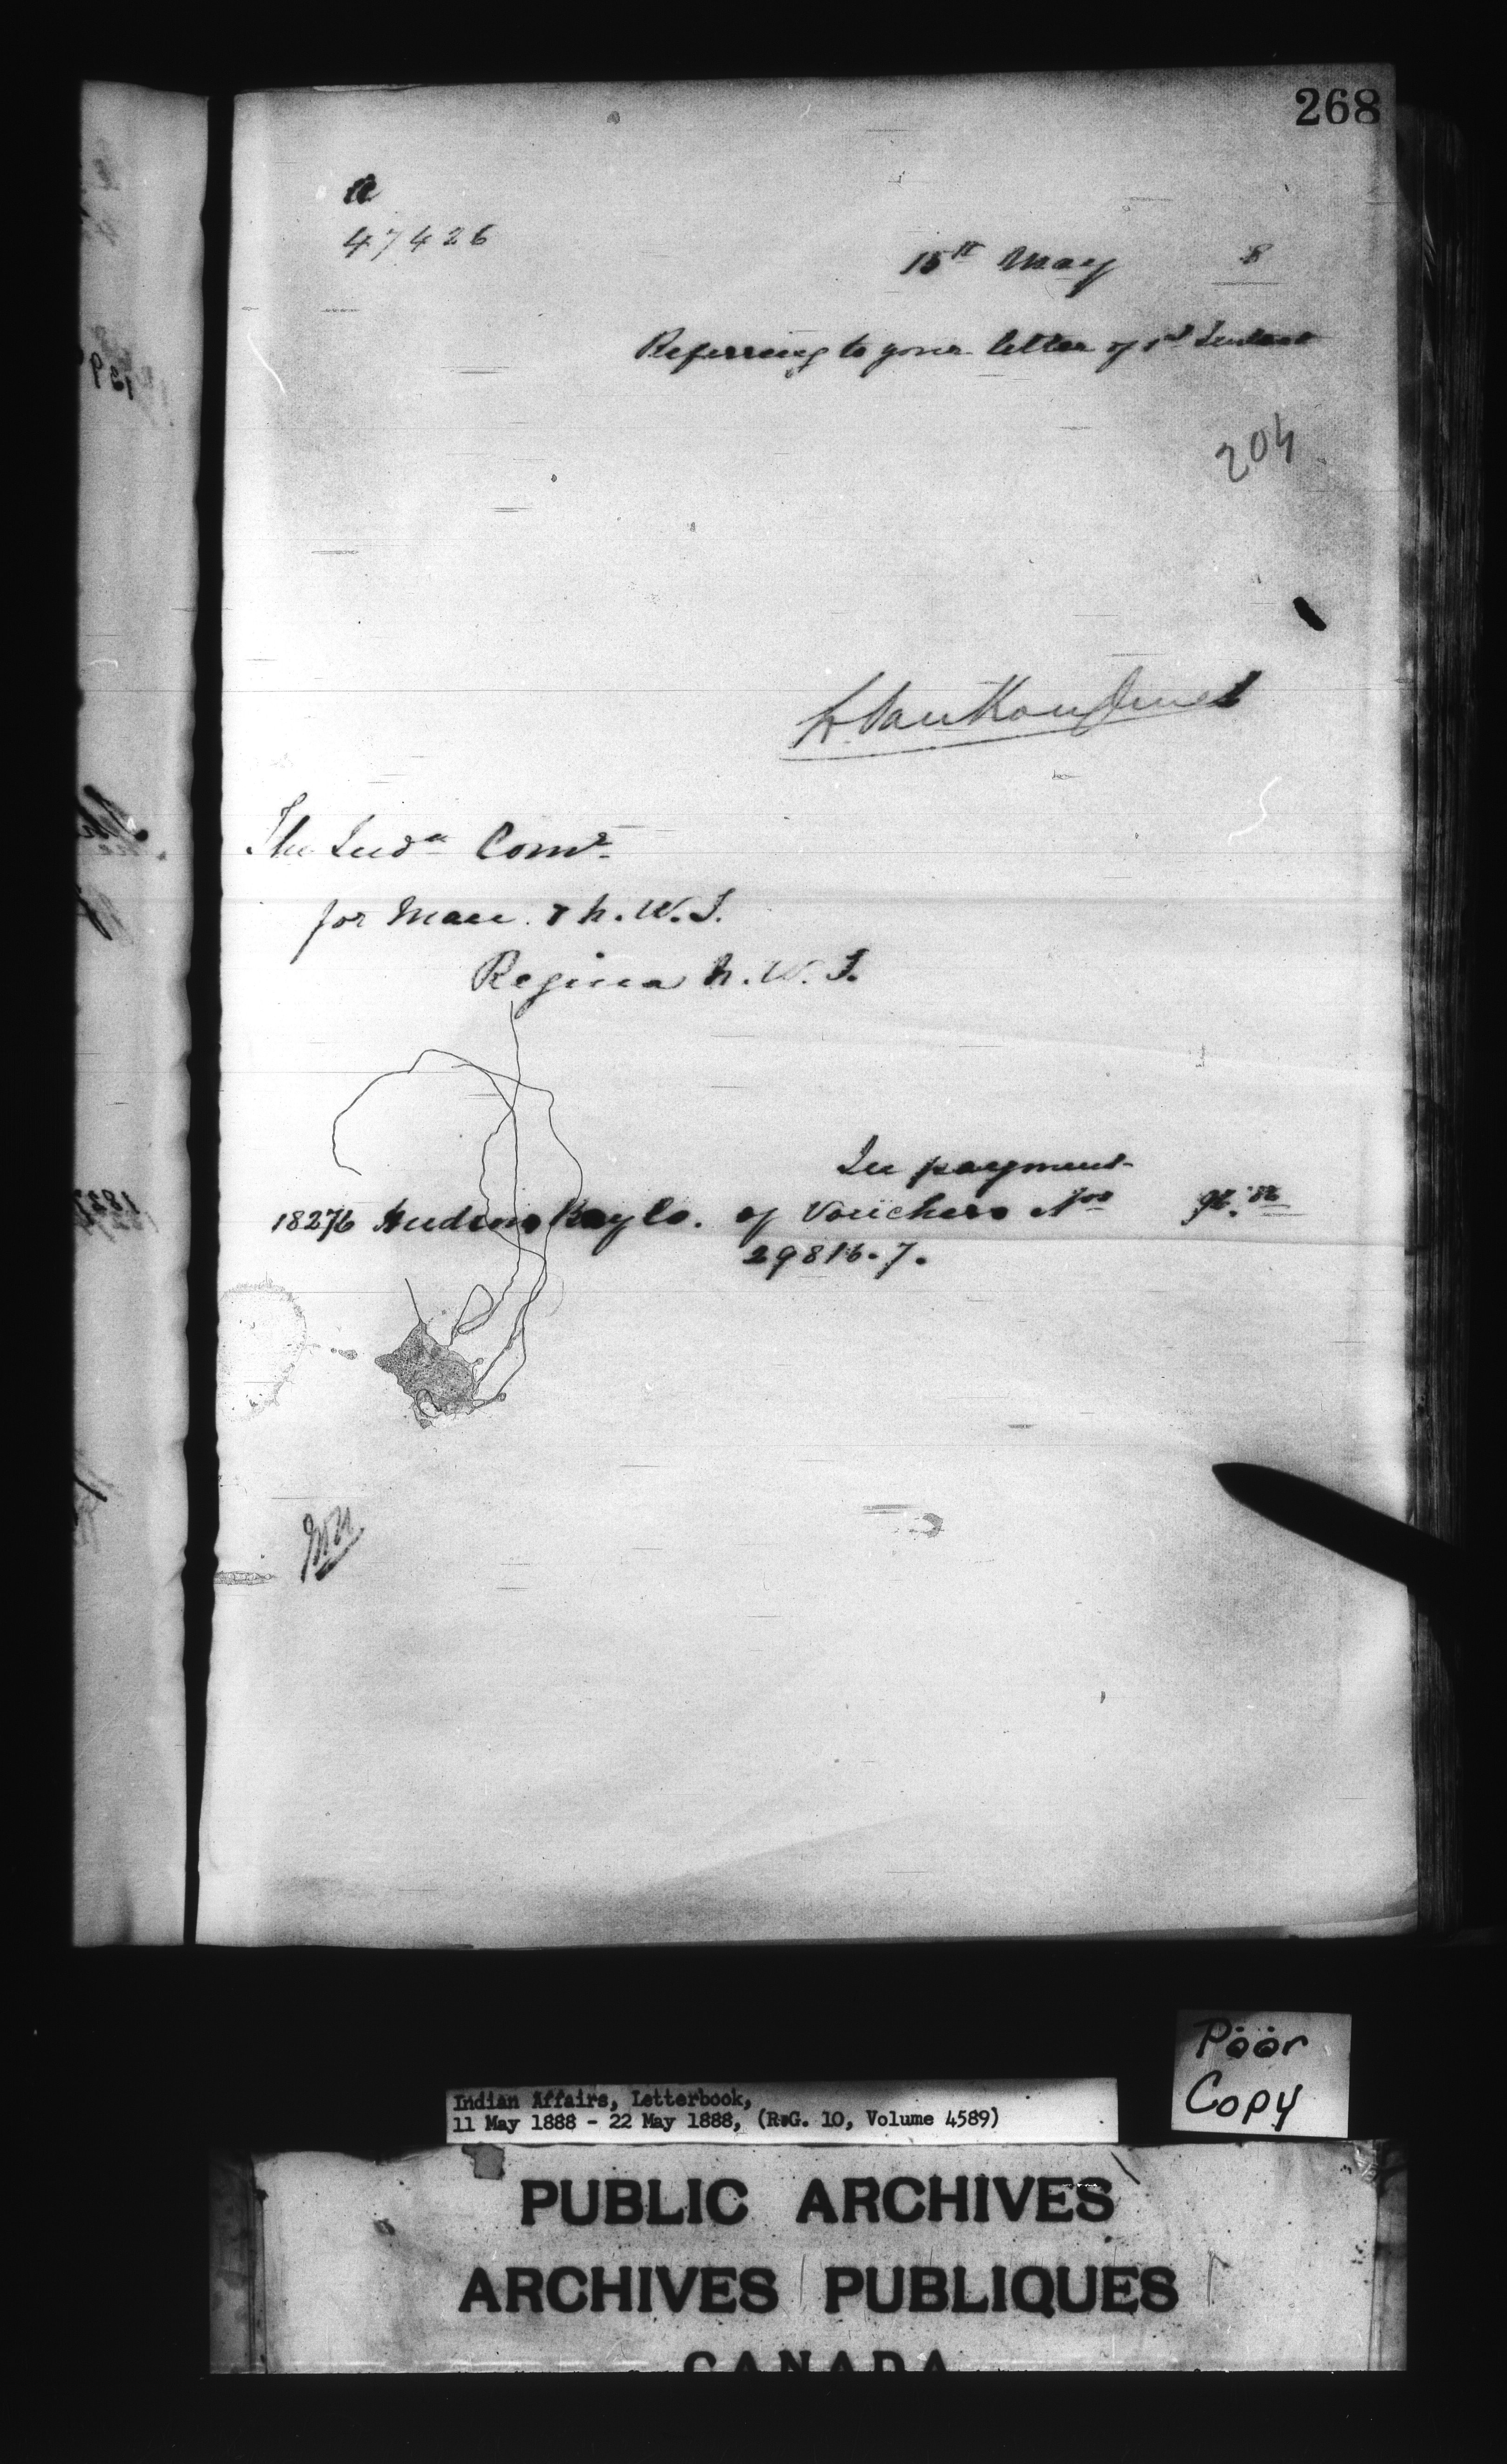 268
a
47426
15th May 8
Referring to your letter of 1st Instant
204
L. VanKoughnet
The Indn Comr
for Man. & N.W.T.
Regina N.W.T.
In payment
18276 Hudsons Bay Co. of Vouchers Nos
29816.7.
Poor
Copy
Indian Affairs, Letterbook,
11 May 1888 - 22 May 1888, (R.G. 10, Volume 4589)
PUBLIC ARCHIVES
ARCHIVES PUBLIQUES
CANADA